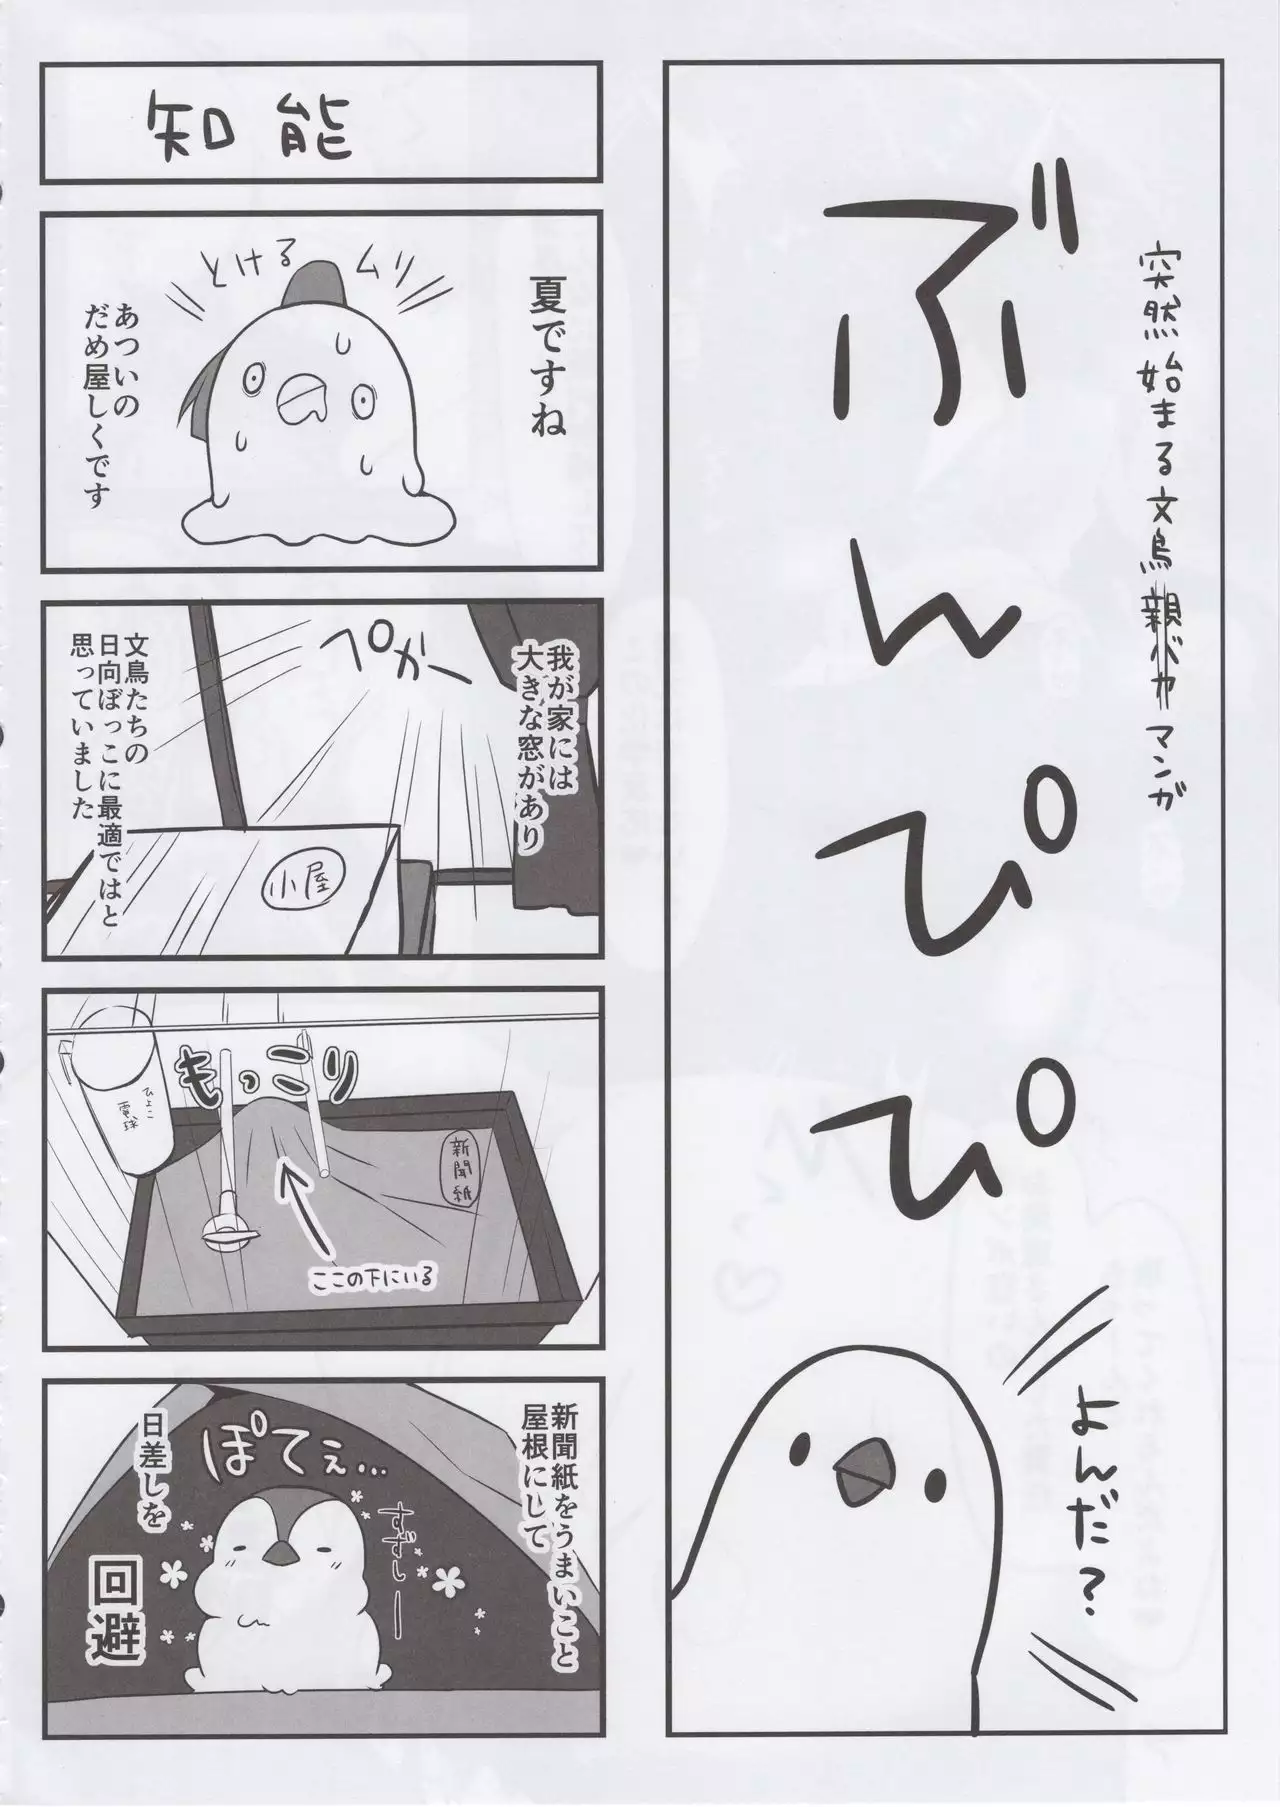 突然始まる文鳥親バカマンガ
ぶんぴぴ
よんだ?
知能
夏ですね
ムリ
とける
あついの
だめ屋しくです
我が家には
大きな窓があり
ペカー
小屋
文鳥たちの
日向ぼっこに最適ではと
思っていました
もっこり
ひよこ
電球
新聞紙
ここの下にいる
新聞紙をうまいこと
屋根にして
ぽてぇ…
すずしー
日差しを
回避